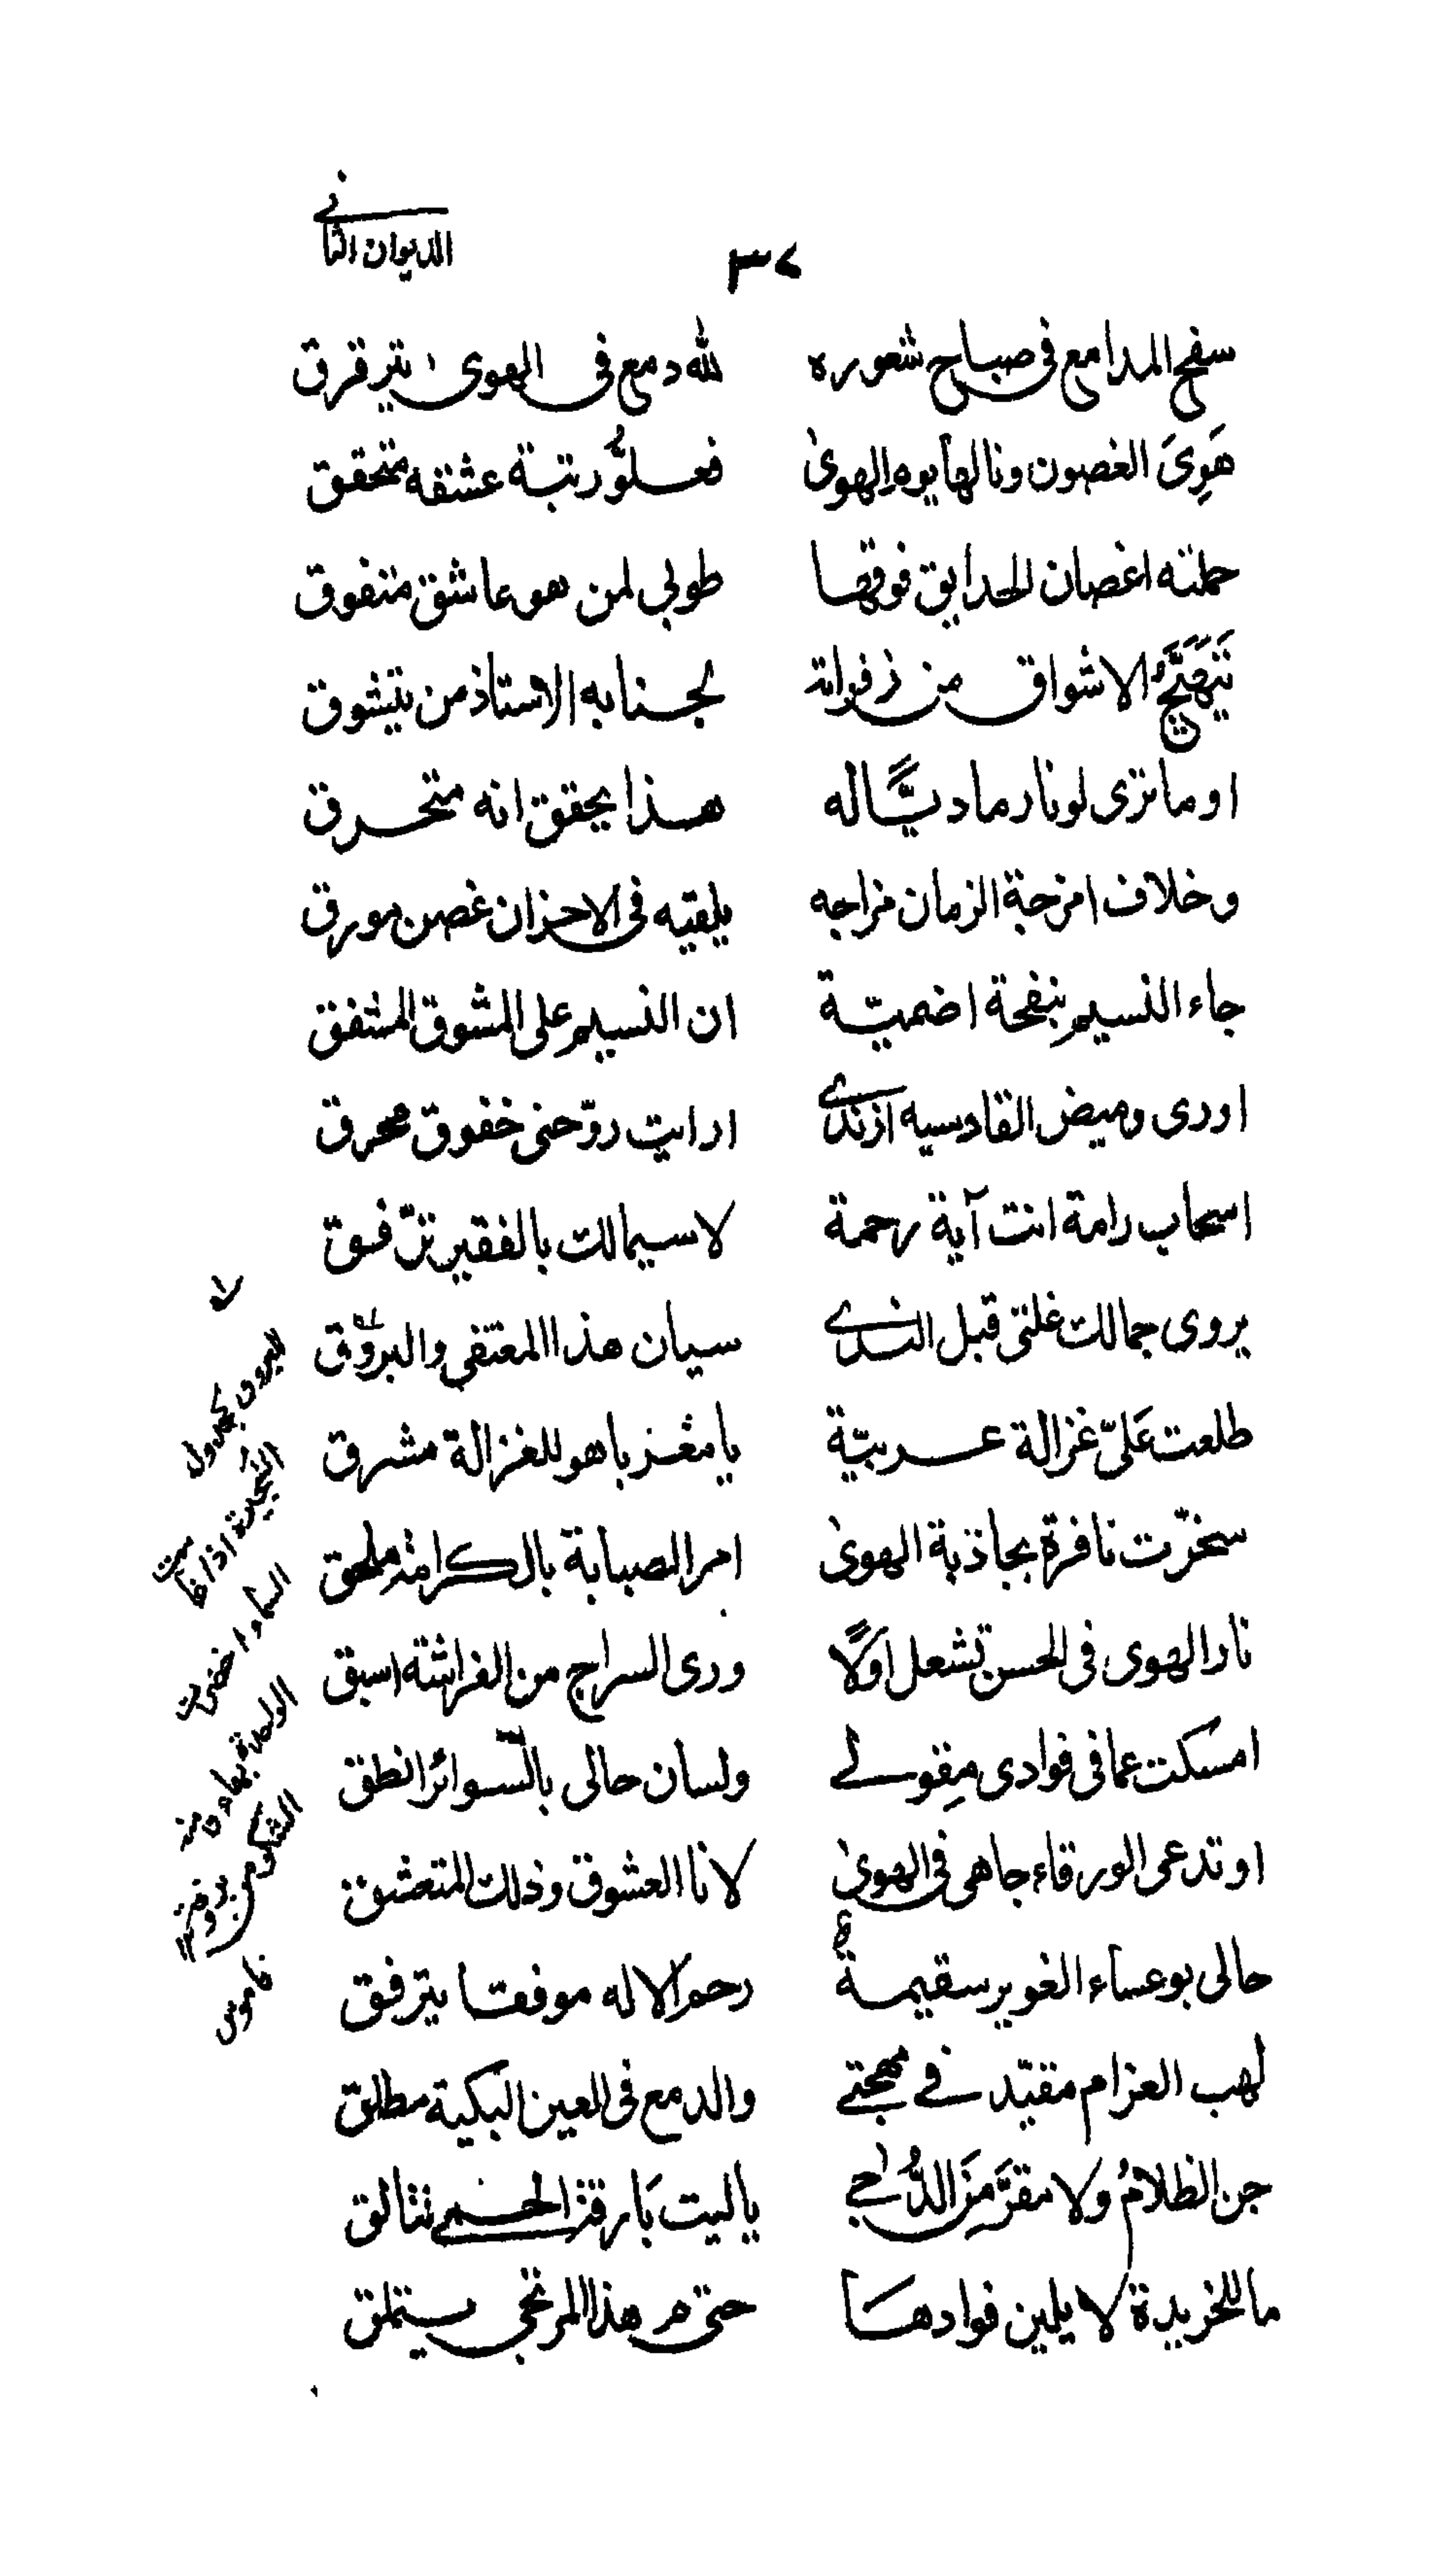 الديوان الثانى
٣٢
سفح المدامع فى صباح شعوره لله دمع فى الهوى يترقرق
هَوِىَ الغصون ونالها يوم الهوىٰ فعلوُّ رتبة عشقه متحقق
حملته اغصان الحدايق فوقها طوبى لمن هو عاشق متفوق
تَتَهَيَّجُ الاشواق من زفراته لجنابه الاستاذ من يتشوق
او ما ترى لونا رماديًّا له هذا يحقق انه متحرق
وخلاف امزجة الزمان مزاجه يلقيه فى الاحزان غصن مورق
جاء النسيم بنفحة اضميّة ان النسيم على المشوق المشفق
اورى وميض القادسيه ازندى ارايت روّحنى خفوق محرق
اسحاب رامة انت آية رحمة لا سيما لك بالفقير ترّفق
يروى جمالك غلتى قبل الندى سيان هذا المعتفى والبروق
طلعت عَلىّ غزالة عربيّة يا مغربا هو للغزالة مشرق
سخرّت نافرة بجاذبة الهوىٰ امر الصبابة بالكرامة ملحق
نار الهوى فى الحسن تشعل اوّلًا ورى السراج من الفراشة اسبق
امسكت عما فى فوادى مِقولى ولسان حالى بالسّوائر انطق
او تدعى الورقاء جاهى فى الهوىٰ لانا العشوق وذلك المتعشق
حالى بوعساء الغوير سقيمة رحم الاله موفقا يترفق
لهب الغرام مقيّد فى مهجتى والدمع فى العين البكية مطلق
جن الظلامُ ولا مقرَّ مِنَ الدُّجى يا ليت بَارقة الحمى تتالق
ما للخريدة لا يلين فوادهَا حتى م هذا المرتجى يتملق
البروق كجرول
شجيرة اذا غامت
السماء اخضرت
الواحدة بهاء ومنه
اشكر من بروقة
قاموس